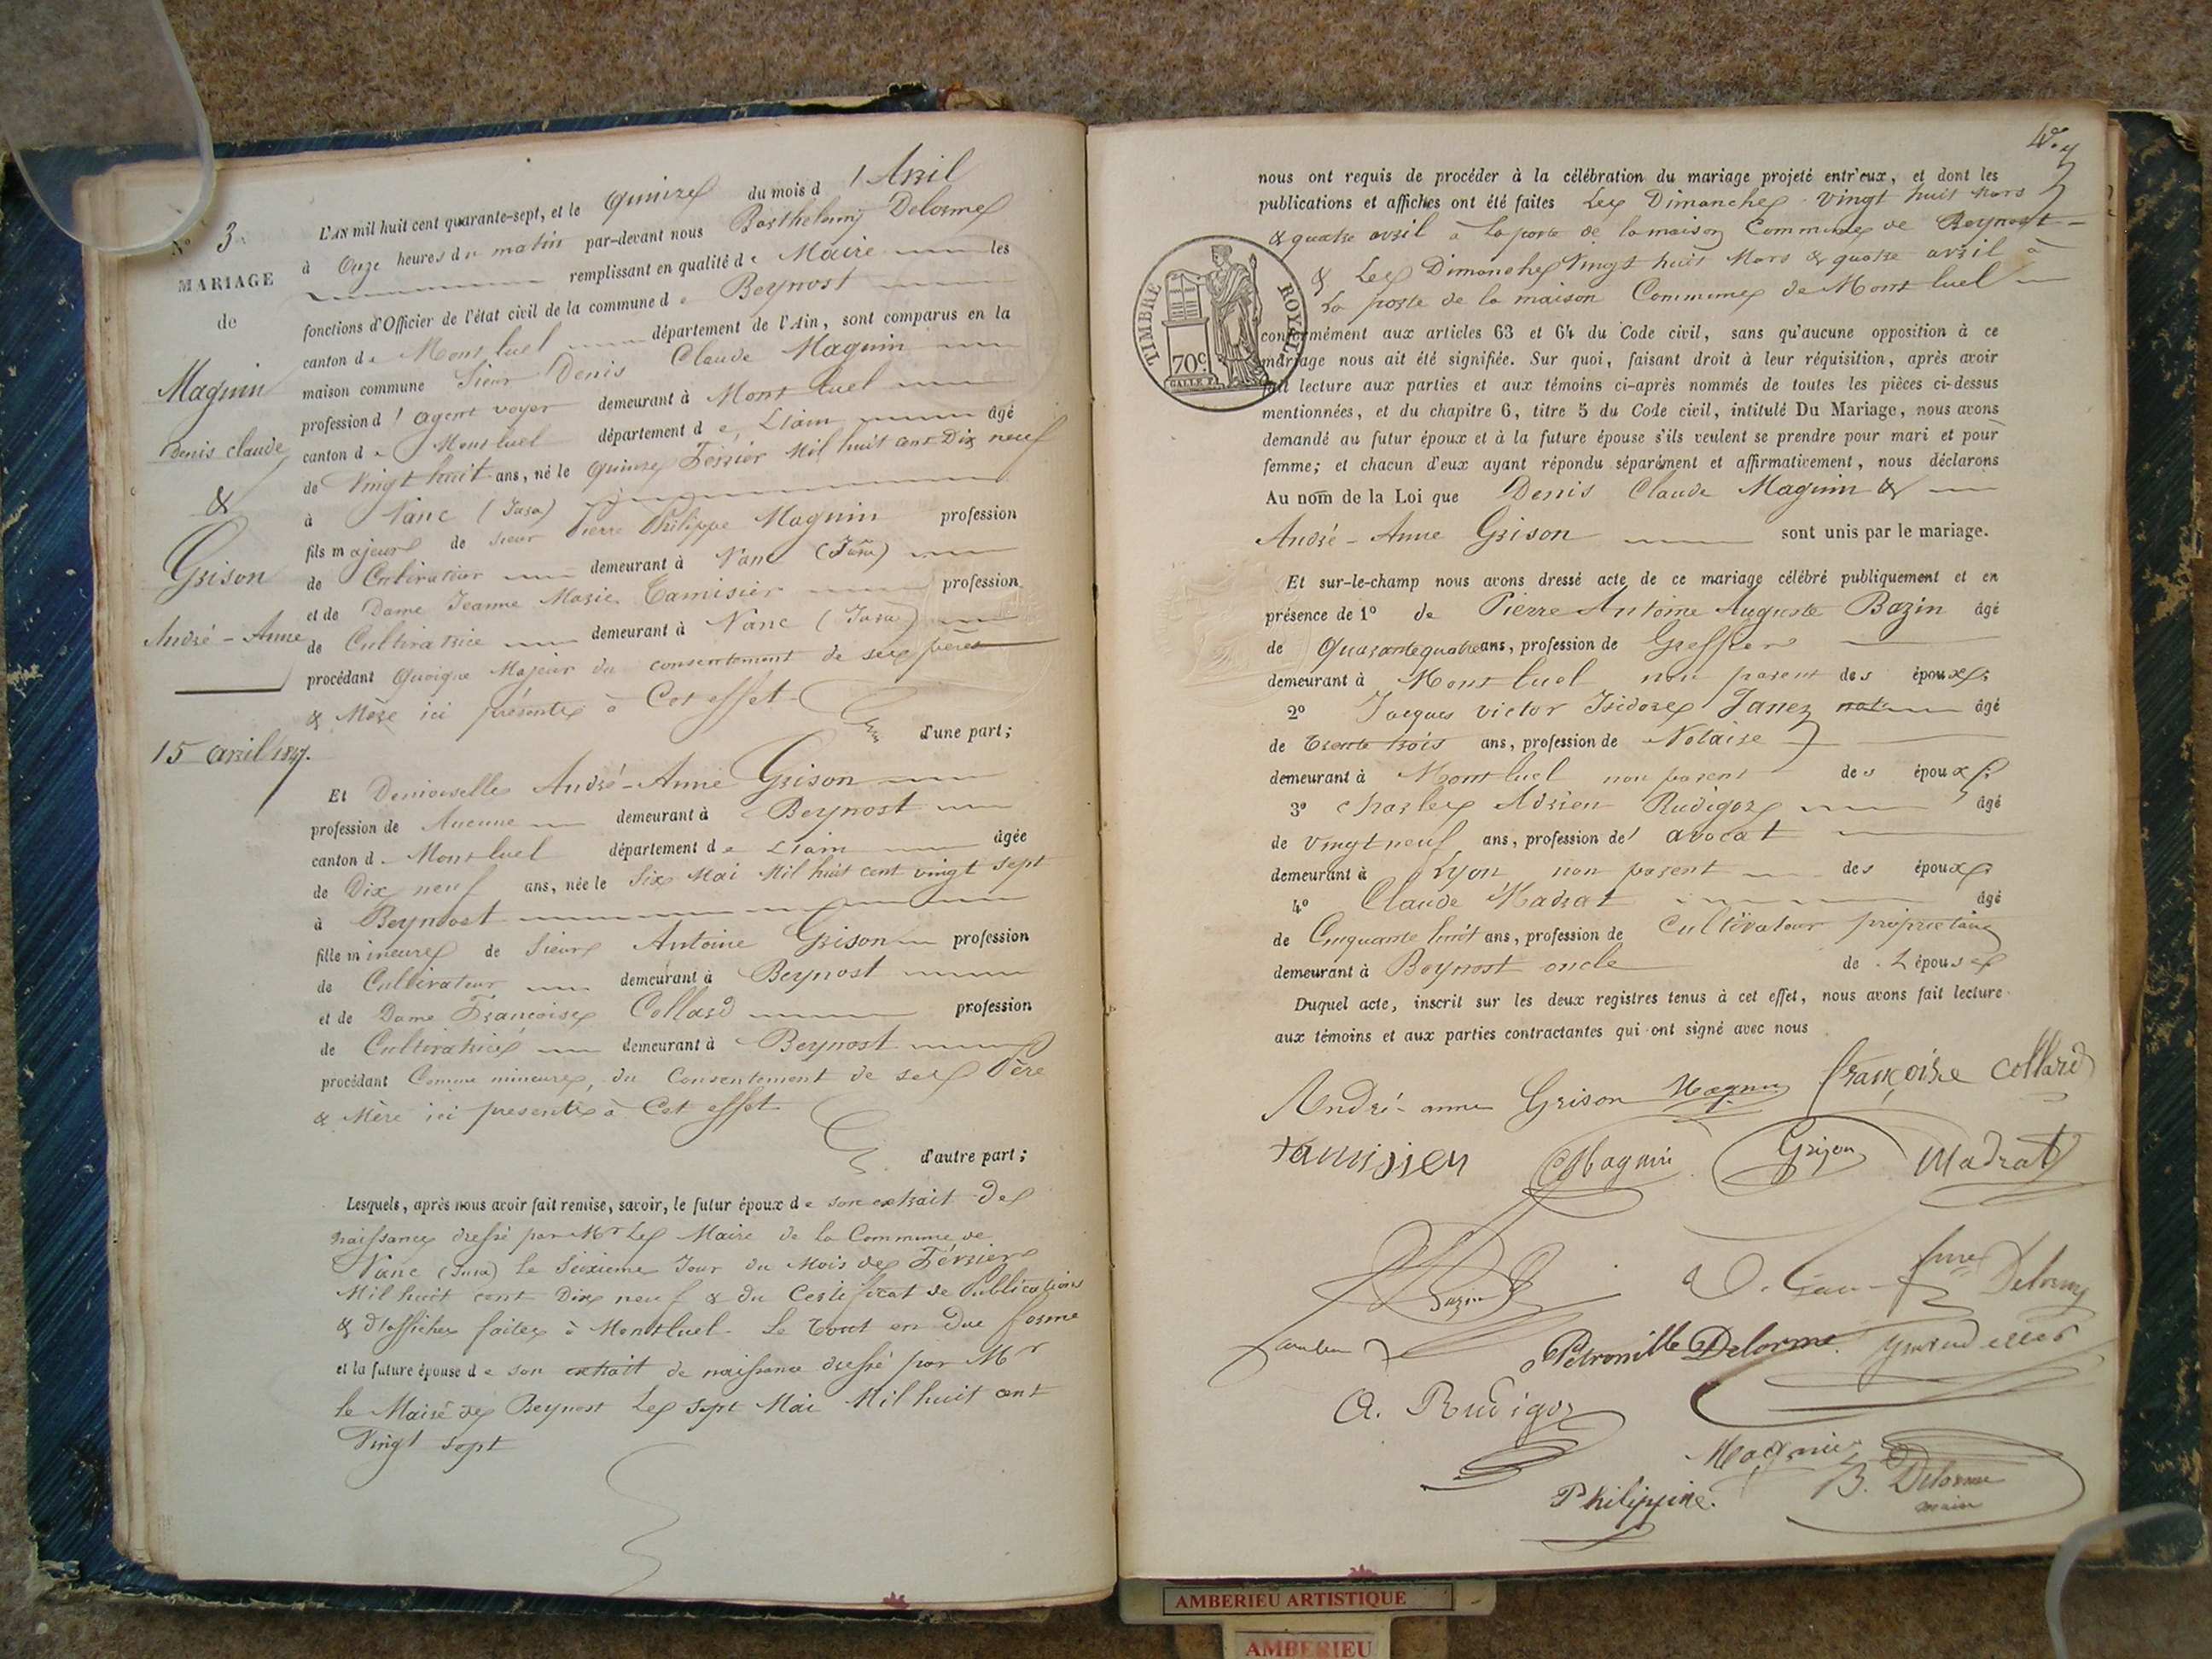 N° 3
MARIAGE
de
Maguin
Denis Claude
&
Grison
André-Anne
15 avril 1847.
L'AN mil huit cent quarante-sept, et le quinze du mois d'Avril
à Onze heures du matin par-devant nous Barthelemy Delorme
remplissant en qualité de Maire les
fonctions d'Officier de l'état civil de la commune de Beynost
canton de Montluel département de l'Ain, sont comparus en la
maison commune Sieur Denis Claude Maguin
profession d'agent voyer demeurant à Montluel
canton de Montluel département de L'ain âgé
de Vingt huit ans, né le quinze Février Mil huit cent Dix neuf
à Nanc (Jura)
fils majeur de Sieur Pierre Philippe Maguin profession
de Cultivateur demeurant à Nanc (Jura)
et de Dame Jeanne Marie Tamisier profession
de Cultivatrice demeurant à Nanc (Jura)
procédant quoique Majeur du consentement de ses père
& Mère ici présents à Cet effet
d'une part;
Et Demoiselle André-Anne Grison
profession de Aucune demeurant à Beynost
canton de Montluel département de L'ain âgée
de Dix neuf ans, née le Six Mai Mil huit cent vingt sept
à Beynost
fille mineure de Sieur Antoine Grison profession
de Cultivateur demeurant à Beynost
et de Dame Françoise Collard profession
de Cultivatrice demeurant à Beynost
procédant Comme mineure, du Consentement de ses Père
& Mère ici présents à Cet effet
d'autre part;
Lesquels, après nous avoir fait remise, savoir, le futur époux de son extrait de
naissance dressé par Mr Le Maire de la Commune de
Nanc (Jura) Le Seixieme Jour du Mois de Février
Mil huit cent Dix neuf & du Certificat de Publications
& d'affiches faites à Montluel Le Tout en Due forme
et la future épouse de son extrait de naissance dressé par Mr
le Maire de Beynost Le Sept Mai Mil huit cent
Vingt Sept
nous ont requis de procéder à la célébration du mariage projeté entr'eux, et dont les
publications et affiches ont été faites Les Dimanches Vingt huit Mars
& quatre avril à la porte de la maison Commune de Beynost
& Les Dimanches Vingt huit Mars & quatre avril à
La porte de la maison Commune de Montluel
TIMBRE ROYAL
70c.
conformément aux articles 63 et 64 du Code civil, sans qu'aucune opposition à ce
mariage nous ait été signifiée. Sur quoi, faisant droit à leur réquisition, après avoir
fait lecture aux parties et aux témoins ci-après nommés de toutes les pièces ci-dessus
mentionnées, et du chapitre 6, titre 5 du Code civil, intitulé Du Mariage, nous avons
demandé au futur époux et à la future épouse s'ils veulent se prendre pour mari et pour
femme; et chacun d'eux ayant répondu séparément et affirmativement, nous déclarons
Au nom de la Loi que Denis Claude Maguin &
André-Anne Grison sont unis par le mariage.
Et sur-le-champ nous avons dressé acte de ce mariage célébré publiquement et en
présence de 1° de Pierre Antoine Auguste Bazin âgé
de Quarante quatre ans, profession de Greffier
demeurant à Montluel non parent des époux;
2° Jacques Victor Isidore Janez âgé
de Trente trois ans, profession de Notaire
demeurant à Montluel non parent des époux;
3° Charles Adrien Rudigoz âgé
de vingt neuf ans, profession de'avocat
demeurant à Lyon non parent des époux
4° Claude Madrat âgé
de Cinquante huit ans, profession de Cultivateur propriétaire
demeurant à Beynost oncle de L'épouse
Duquel acte, inscrit sur les deux registres tenus à cet effet, nous avons fait lecture
aux témoins et aux parties contractantes qui ont signé avec nous
André-anne Grison Maguin françoise Collard
tamisier Maguin Grison Madrat
Bazin Delorme
Petronille Delorme
A. Rudigoz
Maguin
Philippine. B. Delorme
maire
AMBERIEU ARTISTIQUE
AMBERIEU